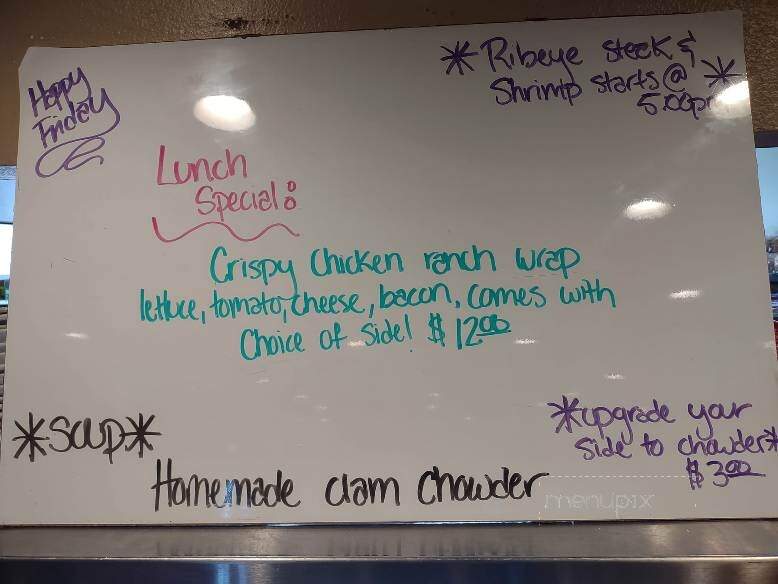 Happy
Friday
*Ribeye steek &
Shrimp starts @ *
5:00p
Lunch
Special:
Crispy Chicken ranch wrap
lettuce, tomato, cheese, bacon, comes with
Choice of side! $12.00
*soup*
Homemade clam chowder
*upgrade your
side to chowder*
$3.00
menupix